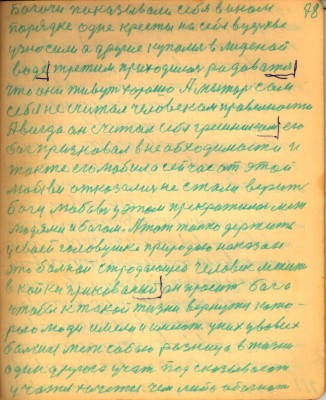 78
богочи показывали себя в ином
порядке одне кресты на себя в церкве
уносили а другие купались в ледяной
воде третим приходилось радоватся
что они живут хорошо А мытарь сам
себя не считал человеком правильности
А всегда он считал себя грешником его
бог признавал в необходимости и
также его любил а сейчас от этой
любви отказались не стали верить
богу любовь у этом прекратилась меж
людями и богом. А тот только держить
у своей головушке природою наказан
это больной страдающего человек лежить
в койки прикований он просить бога
чтобы к такой жизни вернутся кото-
рые люди имели и имеють у них у своех
болших меж собою разница в жизни
один другого учат подсказывают
учатся хочется чем либо обогнат